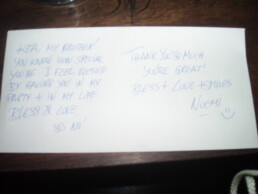 MY BROTHER!
YOU KNOW HOW SPECIAL
YOU'RE I FEEL BLESSED
BY HAVING YOU IN MY
PARTY + IN MY LIFE
BLESS & LOVE
THANK YOU SO MUCH
YOU'RE GREAT!
BLESS + LOVE + SMILES